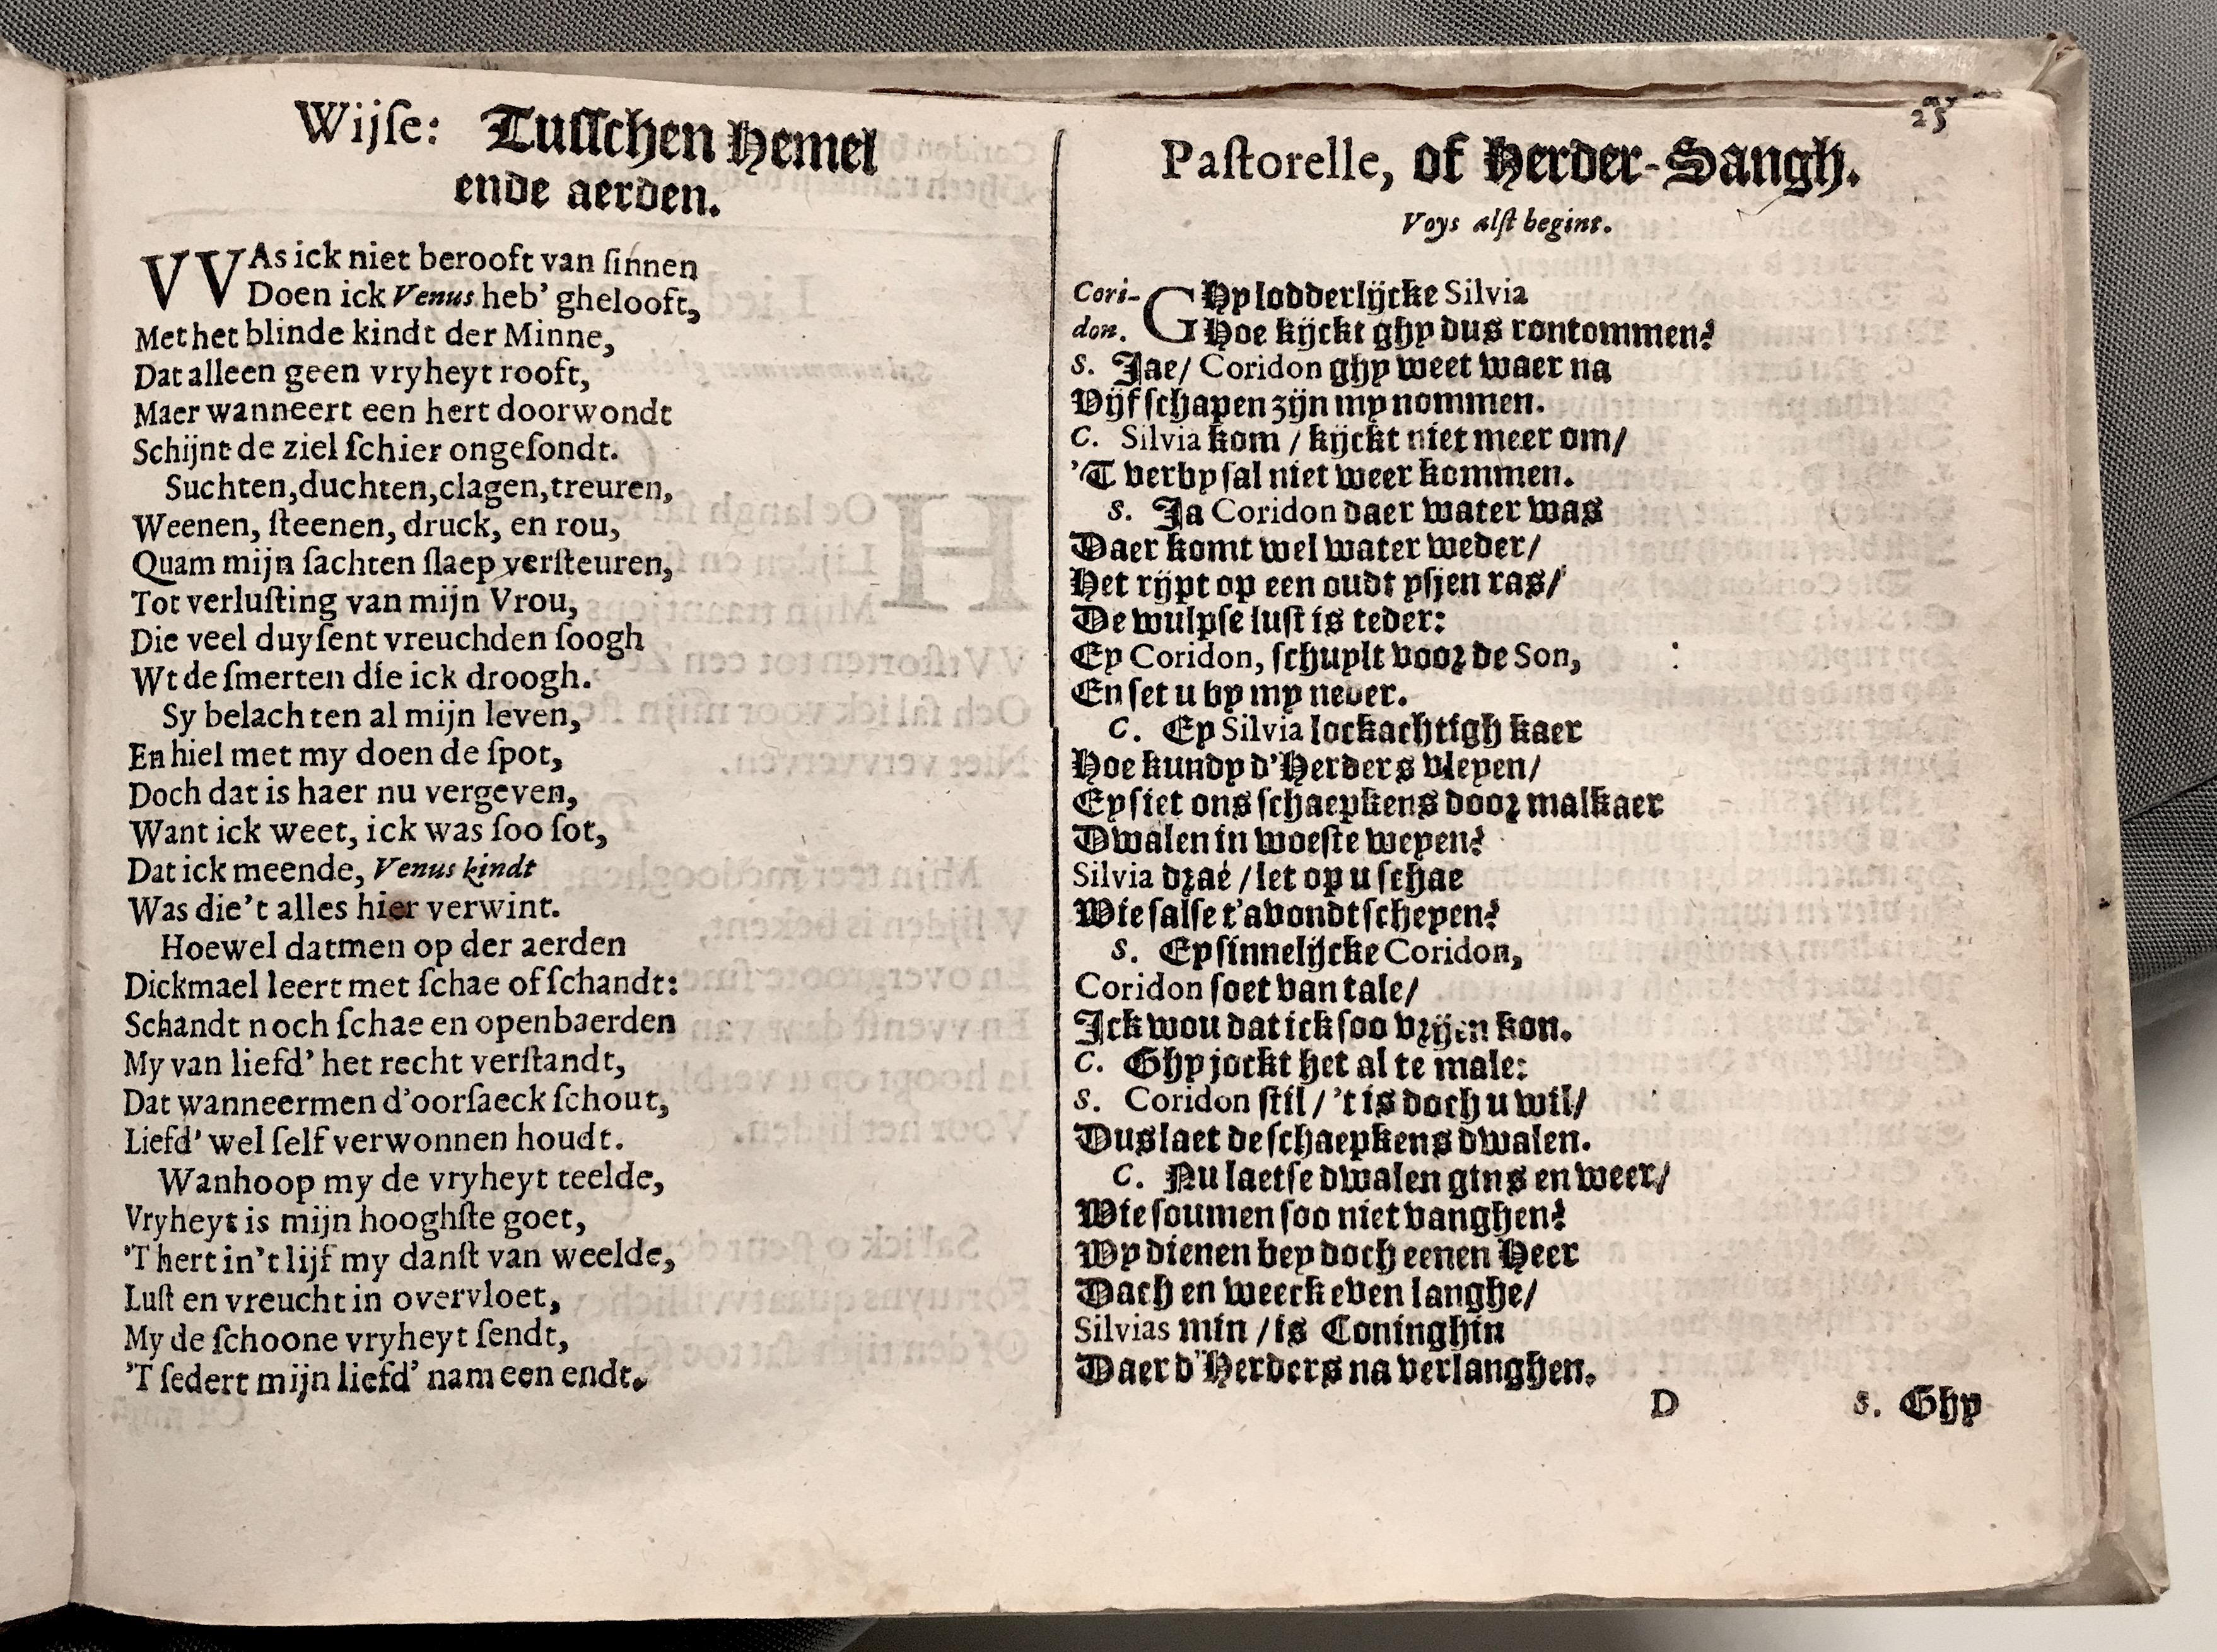 Wijſe: Tuſſchen Hemel
ende aerden.
VVAs ick niet berooft van ſinnen
Doen ick Venus heb' ghelooft,
Met het blinde kindt der Minne,
Dat alleen geen vryheyt rooft,
Maer wanneert een hert doorwondt
Schijnt de ziel ſchier ongeſondt.
Suchten, duchten, clagen, treuren,
Weenen, ſteenen, druck, en rou,
Quam mijn ſachten ſlaep verſteuren,
Tot verluſting van mijn Vrou,
Die veel duyſent vreuchden ſoogh
Wt de ſmerten die ick droogh.
Sy belachten al mijn leven,
En hiel met my doen de ſpot,
Doch dat is haer nu vergeven,
Want ick weet, ick was ſoo ſot,
Dat ick meende, Venus kindt
Was die't alles hier verwint.
Hoewel datmen op der aerden
Dickmael leert met ſchae of ſchandt:
Schandt noch ſchae en openbaerden
My van liefd' het recht verſtandt,
Dat wanneermen d'oorſaeck ſchout,
Liefd' wel ſelf verwonnen houdt.
Wanhoop my de vryheyt teelde,
Vryheyt is mijn hooghſte goet,
'T hert in't lijf my danſt van weelde,
Luſt en vreucht in overvloet,
My de ſchoone vryheyt ſendt,
'T ſedert mijn liefd' nam een endt.
25
Paſtorelle, of Herder-Sangh.
Voys alſt begint.
Cori- GHy lodderlijcke Silvia
don. Hoe kijckt ghy dus rontommen?
S. Jae/ Coridon ghy weet waer na
Vijf ſchapen zijn my nommen.
C. Silvia kom / kijckt niet meer om/
'T verby ſal niet weer kommen.
S. Ja Coridon daer water was
Daer komt wel water weder/
Het rijpt op een oudt yſjen ras/
De wulpſe luſt is teder:
Ey Coridon, ſchuylt voor de Son,
En ſet u by my neder.
C. Ey Silvia lockachtigh kaer
Hoe kundy d'Herders vleyen/
Ey ſiet ons ſchaepkens door malkaer
Dwalen in woeſte weyen?
Silvia drae / let op u ſchae
Wie ſalſe t'avondt ſcheyen?
S. Ey ſinnelijcke Coridon,
Coridon ſoet van tale/
Ick wou dat ick ſoo vrijen kon.
C. Ghy jockt het al te male:
S. Coridon ſtil / 't is doch u wil/
Dus laet de ſchaepkens dwalen.
C. Nu laetſe dwalen gins en weer/
Wie ſoumen ſoo niet vanghen?
Wy dienen bey doch eenen Heer
Dach en weeck even langhe/
Silvias min / is Coninghin
Daer d'Herders na verlanghen.
D S. Ghy